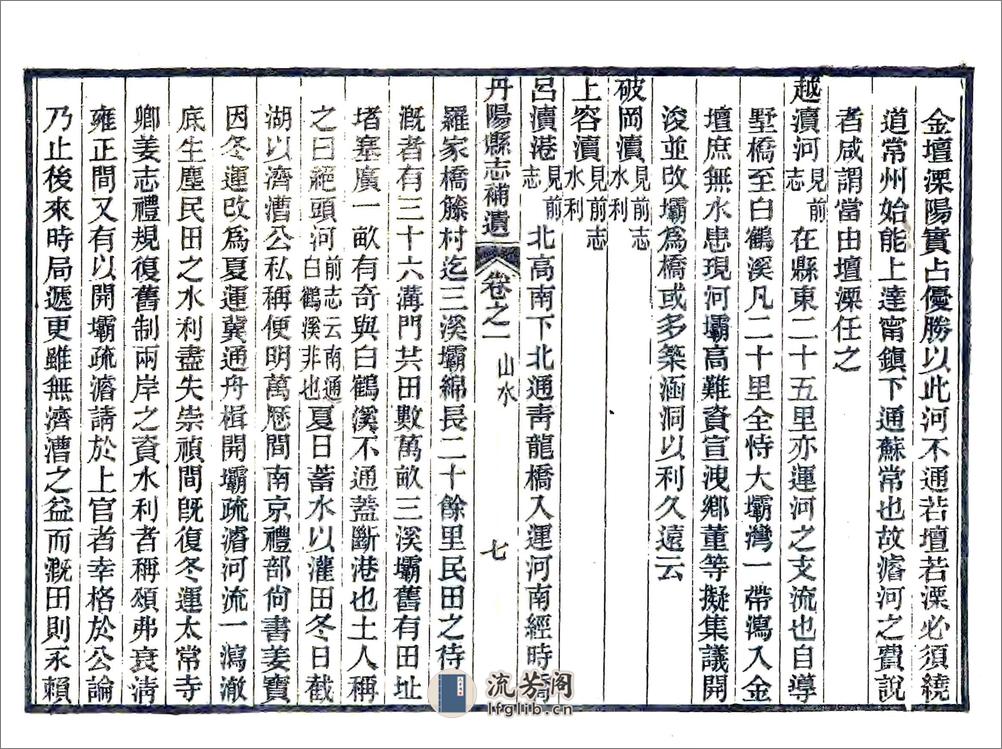 金壇溧陽實占優勝以此河不通若壇若溧必須繞
道常州始能上達甯鎮下通蘇常也故濬河之費說
者咸謂當由壇溧任之
越瀆河見前志在縣東二十五里亦運河之支流也自導
墅橋至白鶴溪凡二十里全恃大壩灣一帶瀉入金
壇庶無水患現河壩高難資宣洩鄉董等擬集議開
浚並改壩爲橋或多築涵洞以利久遠云
破岡瀆見前志水利
上容瀆見前志水利
呂瀆港見前志北高南下北通靑龍橋入運河南經時
丹陽縣志補遺 卷之一 山水 七
羅家橋篠村迄三溪壩綿長二十餘里民田之待
溉者有三十六溝門共田數萬畝三溪壩舊有田址
堵塞廣一畝有奇與白鶴溪不通蓋斷港也土人稱
之曰絕頭河前志云南通白鶴溪非也夏日蓄水以灌田冬日截
湖以濟漕公私稱便明萬懕間南京禮部尙書姜寶
因冬運改爲夏運冀通舟楫開壩疏濬河流一瀉澈
底生塵民田之水利盡失崇禎間旣復冬運太常寺
卿姜志禮規復舊制兩岸之資水利者稱頌弗衰淸
雍正間又有以開壩疏濬請於上官者幸格於公論
乃止後來時局遞更雖無濟漕之益而溉田則永賴
流芳阁
lfglib.cn